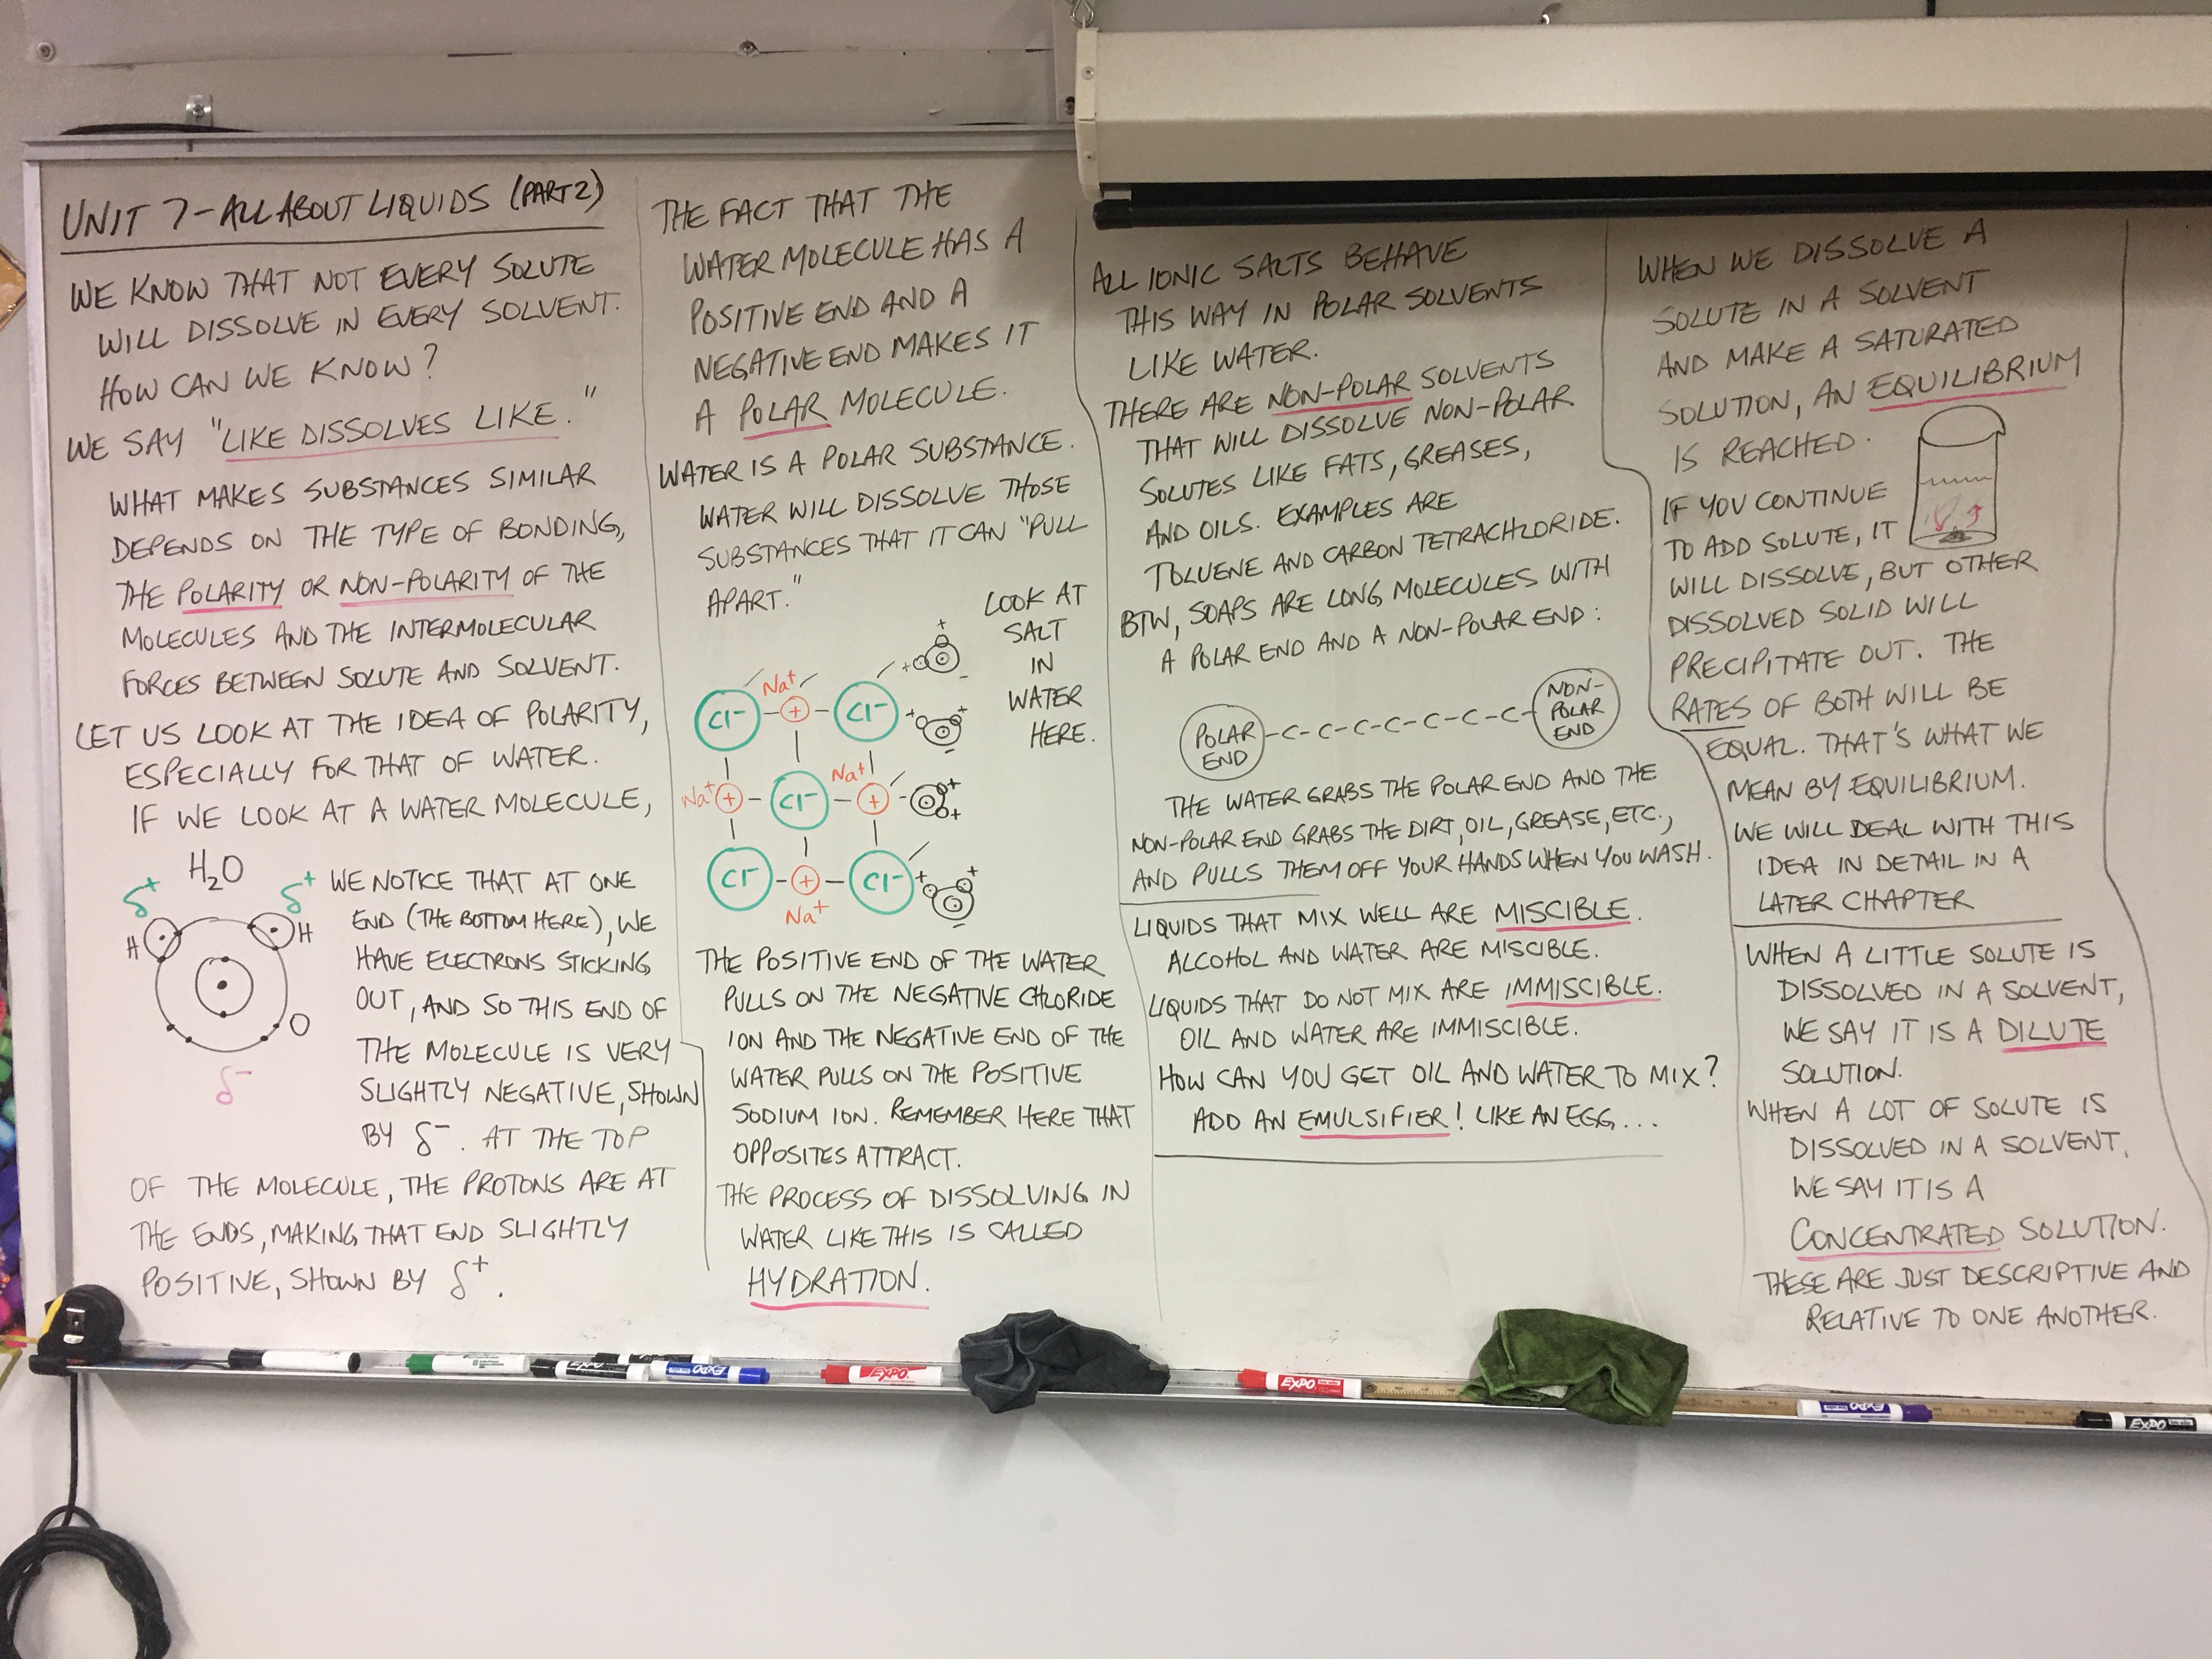 UNIT 7 - ALL ABOUT LIQUIDS (PART 2)
WE KNOW THAT NOT EVERY SOLUTE
WILL DISSOLVE IN EVERY SOLVENT.
HOW CAN WE KNOW?
WE SAY "LIKE DISSOLVES LIKE."
WHAT MAKES SUBSTANCES SIMILAR
DEPENDS ON THE TYPE OF BONDING,
THE POLARITY OR NON-POLARITY OF THE
MOLECULES AND THE INTERMOLECULAR
FORCES BETWEEN SOLUTE AND SOLVENT.
LET US LOOK AT THE IDEA OF POLARITY,
ESPECIALLY FOR THAT OF WATER.
IF WE LOOK AT A WATER MOLECULE,
H₂O
δ⁺ δ⁺
H H
O
δ⁻
WE NOTICE THAT AT ONE
END (THE BOTTOM HERE), WE
HAVE ELECTRONS STICKING
OUT, AND SO THIS END OF
THE MOLECULE IS VERY
SLIGHTLY NEGATIVE, SHOWN
BY δ⁻. AT THE TOP
OF THE MOLECULE, THE PROTONS ARE AT
THE ENDS, MAKING THAT END SLIGHTLY
POSITIVE, SHOWN BY δ⁺.
THE FACT THAT THE
WATER MOLECULE HAS A
POSITIVE END AND A
NEGATIVE END MAKES IT
A POLAR MOLECULE.
WATER IS A POLAR SUBSTANCE.
WATER WILL DISSOLVE THOSE
SUBSTANCES THAT IT CAN "PULL
APART."
LOOK AT
SALT
IN
WATER
HERE.
+
+ -
Na⁺
Cl⁻ - + - Cl⁻ + +
-
Na⁺
Na⁺ + - Cl⁻ - + - +
+
Cl⁻ - + - Cl⁻ + +
Na⁺ -
THE POSITIVE END OF THE WATER
PULLS ON THE NEGATIVE CHLORIDE
ION AND THE NEGATIVE END OF THE
WATER PULLS ON THE POSITIVE
SODIUM ION. REMEMBER HERE THAT
OPPOSITES ATTRACT.
THE PROCESS OF DISSOLVING IN
WATER LIKE THIS IS CALLED
HYDRATION.
ALL IONIC SALTS BEHAVE
THIS WAY IN POLAR SOLVENTS
LIKE WATER.
THERE ARE NON-POLAR SOLVENTS
THAT WILL DISSOLVE NON-POLAR
SOLUTES LIKE FATS, GREASES,
AND OILS. EXAMPLES ARE
TOLUENE AND CARBON TETRACHLORIDE.
BTW, SOAPS ARE LONG MOLECULES WITH
A POLAR END AND A NON-POLAR END:
POLAR
END
-C-C-C-C-C-C-C-
NON-
POLAR
END
THE WATER GRABS THE POLAR END AND THE
NON-POLAR END GRABS THE DIRT, OIL, GREASE, ETC.,
AND PULLS THEM OFF YOUR HANDS WHEN YOU WASH.
LIQUIDS THAT MIX WELL ARE MISCIBLE.
ALCOHOL AND WATER ARE MISCIBLE.
LIQUIDS THAT DO NOT MIX ARE IMMISCIBLE.
OIL AND WATER ARE IMMISCIBLE.
HOW CAN YOU GET OIL AND WATER TO MIX?
ADD AN EMULSIFIER! LIKE AN EGG...
WHEN WE DISSOLVE A
SOLUTE IN A SOLVENT
AND MAKE A SATURATED
SOLUTION, AN EQUILIBRIUM
IS REACHED.
IF YOU CONTINUE
TO ADD SOLUTE, IT
WILL DISSOLVE, BUT OTHER
DISSOLVED SOLID WILL
PRECIPITATE OUT. THE
RATES OF BOTH WILL BE
EQUAL. THAT'S WHAT WE
MEAN BY EQUILIBRIUM.
WE WILL DEAL WITH THIS
IDEA IN DETAIL IN A
LATER CHAPTER
WHEN A LITTLE SOLUTE IS
DISSOLVED IN A SOLVENT,
WE SAY IT IS A DILUTE
SOLUTION.
WHEN A LOT OF SOLUTE IS
DISSOLVED IN A SOLVENT,
WE SAY IT IS A
CONCENTRATED SOLUTION.
THESE ARE JUST DESCRIPTIVE AND
RELATIVE TO ONE ANOTHER.
EXPO
EXPO
EXPO
EXPO
EXPO
EXPO